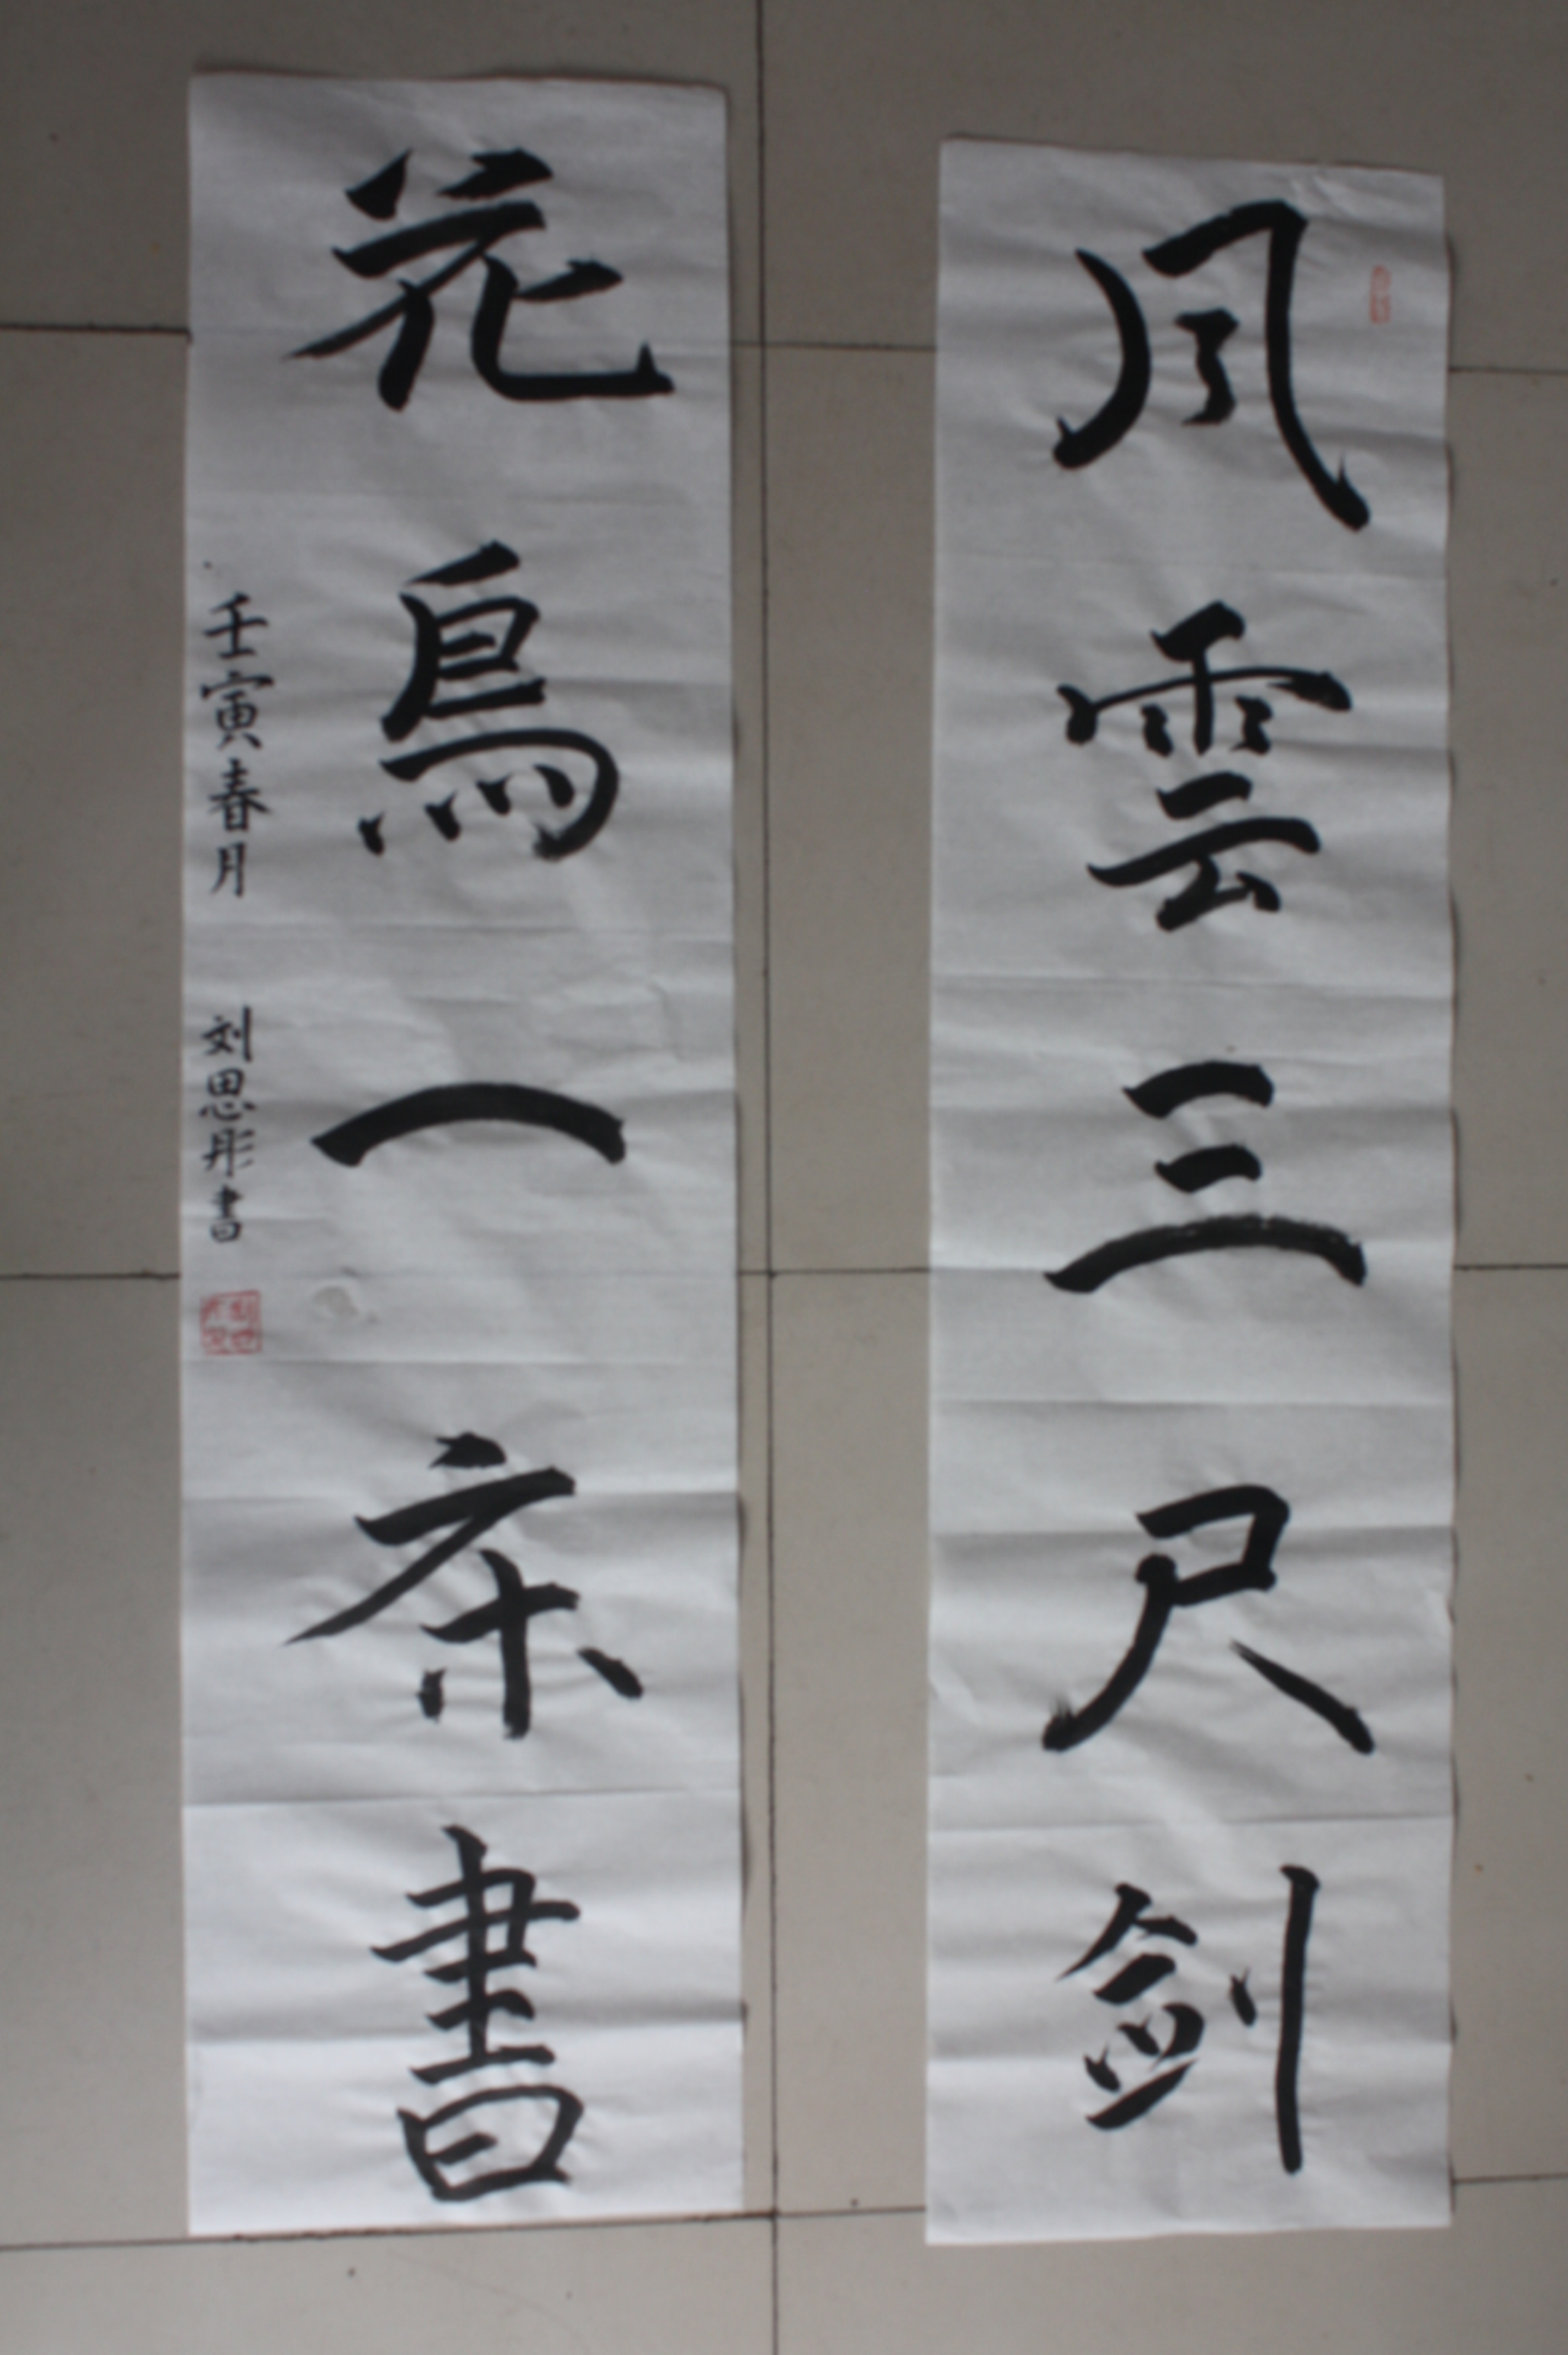 風雲三尺剑
花鳥一床書
壬寅春月 刘思彤書